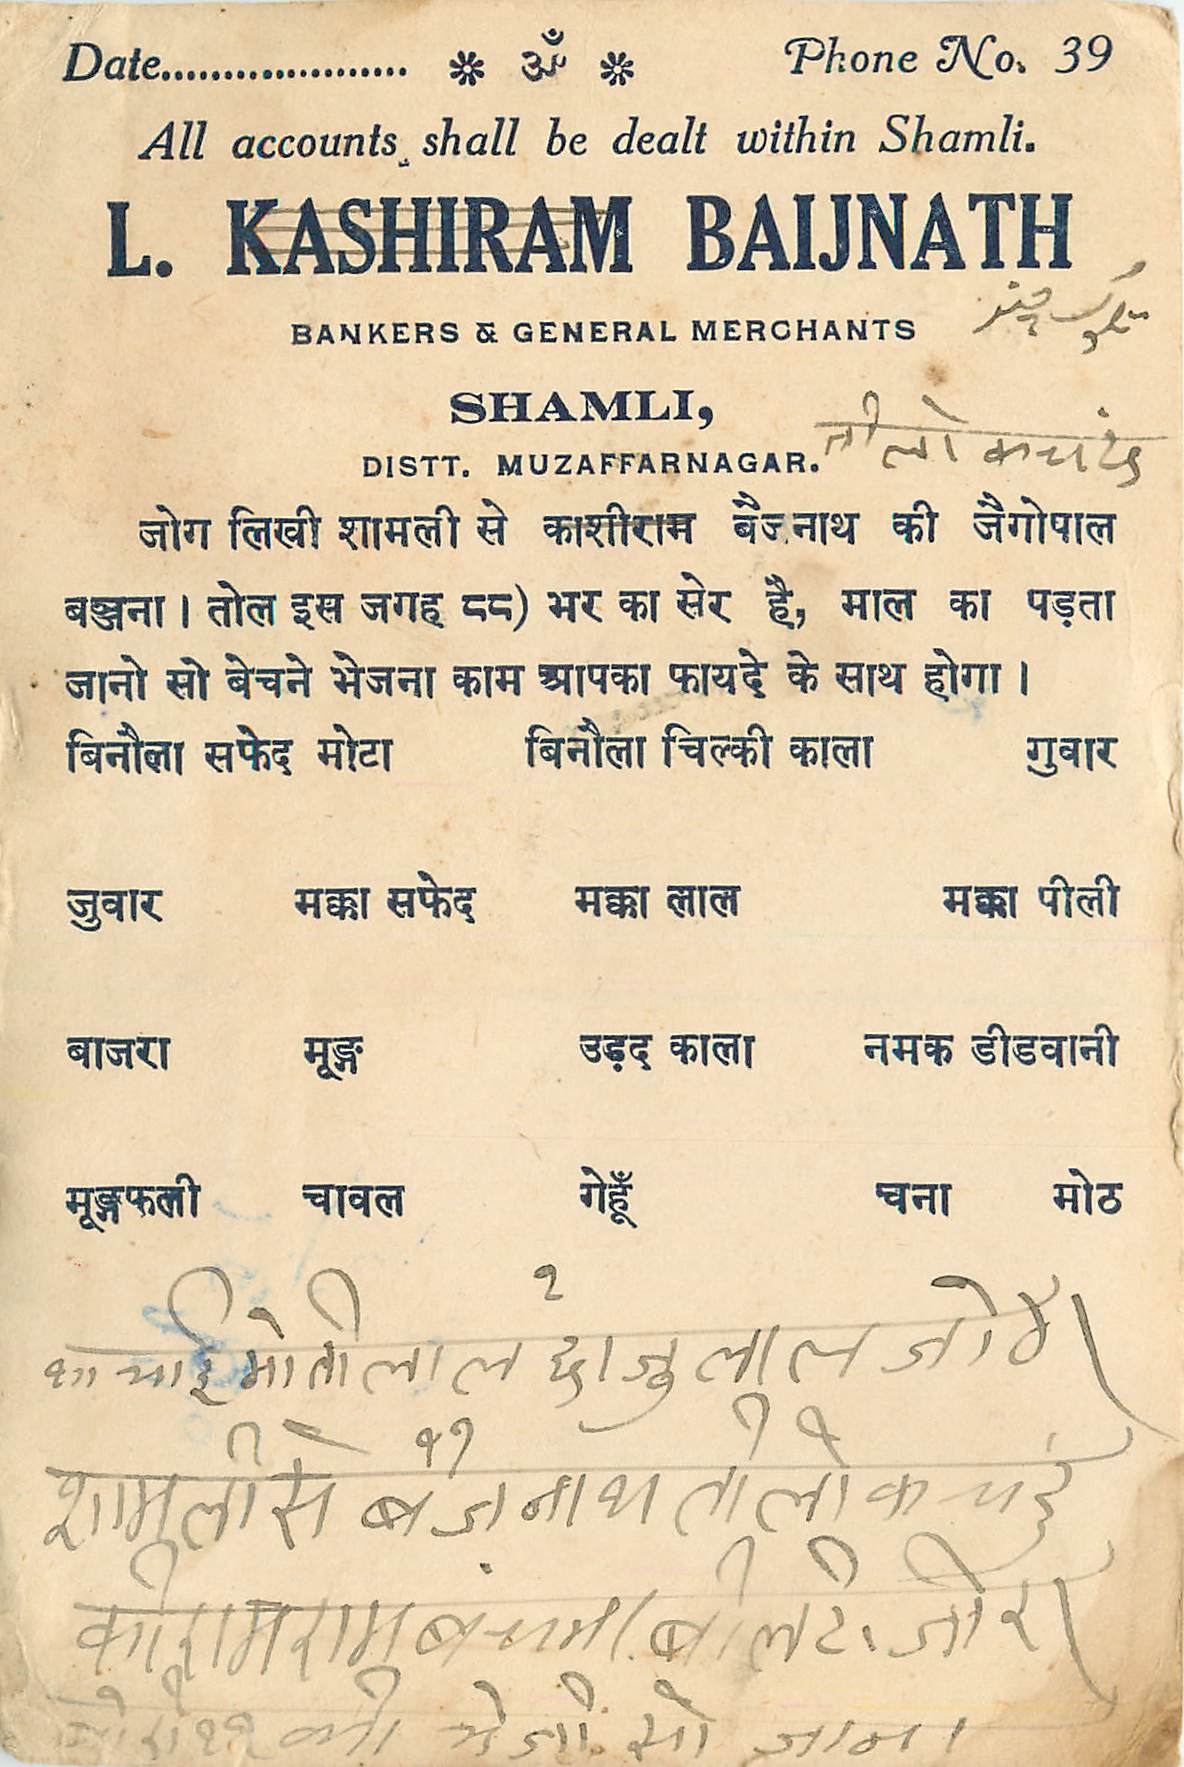 Date..................... ॐ Phone No. 39
All accounts shall be dealt within Shamli.
L. KASHIRAM BAIJNATH
BANKERS & GENERAL MERCHANTS
SHAMLI,
तीलोकचंद
DISTT. MUZAFFARNAGAR.
जोग लिखी शामली से काशीराम बैजनाथ की जैगोपाल
बञ्चना । तोल इस जगह ८८) भर का सेर है, माल का पड़ता
जानो सो बेचने भेजना काम आपका फायदे के साथ होगा ।
बिनौला सफेद मोटा बिनौला चिल्की काला गुवार
जुवार मक्का सफेद मक्का लाल मक्का पीली
बाजरा मूङ्ग उड़द काला नमक डीडवानी
मूङ्गफली चावल गेहूँ चना मोठ
मोतीलाल लाल
शामली से बैजनाथ तीलोकचंद
की राम राम
सो जान